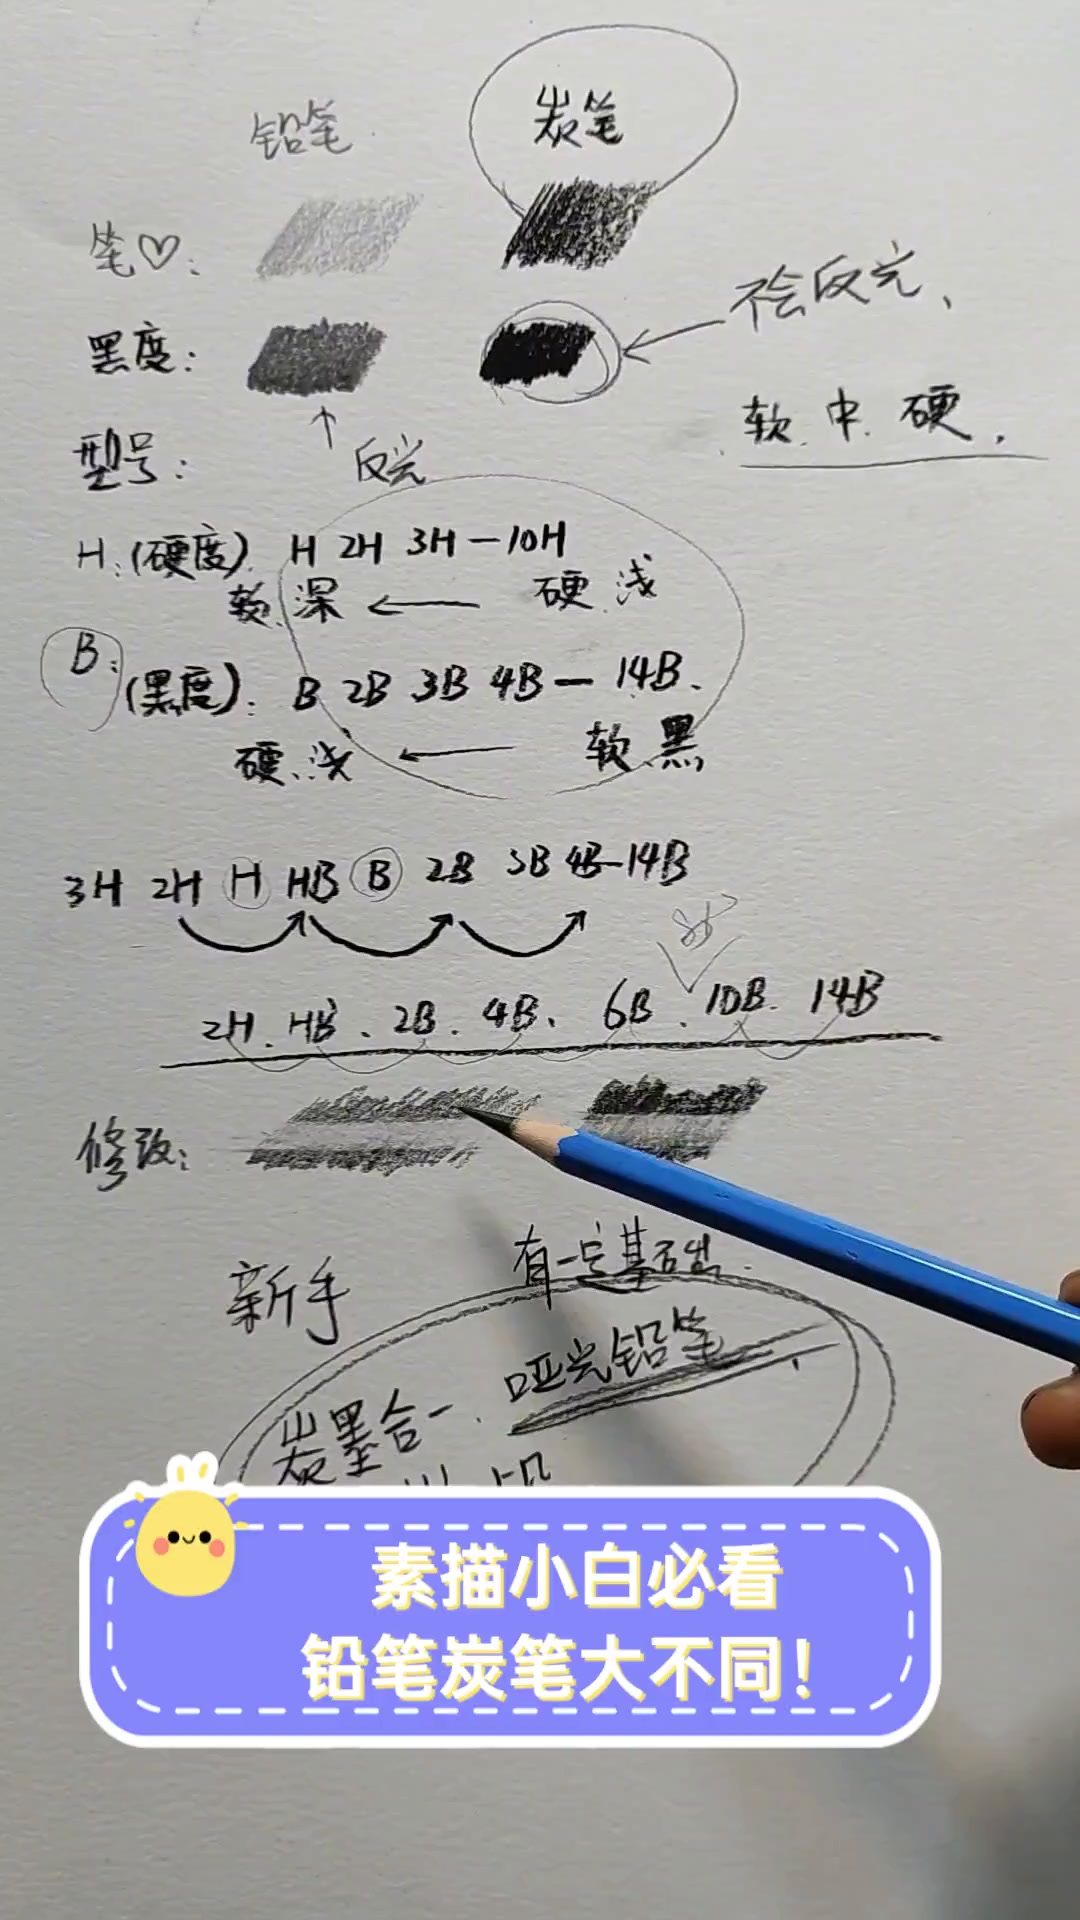 铅笔 炭笔
笔♡:
不会反光、
黑度:
软.中.硬.
型号:
反光
H:(硬度). H 2H 3H—10H
软.深 ← 硬.浅
B:(黑度): B 2B 3B 4B—14B.
硬.浅 ← 软.黑
3H 2H H HB B 2B 3B 4B—14B
2H. HB. 2B. 4B. 6B. 10B. 14B
修改:
新手 有一定基础.
炭墨合一. 哑光铅笔
素描小白必看
铅笔炭笔大不同!